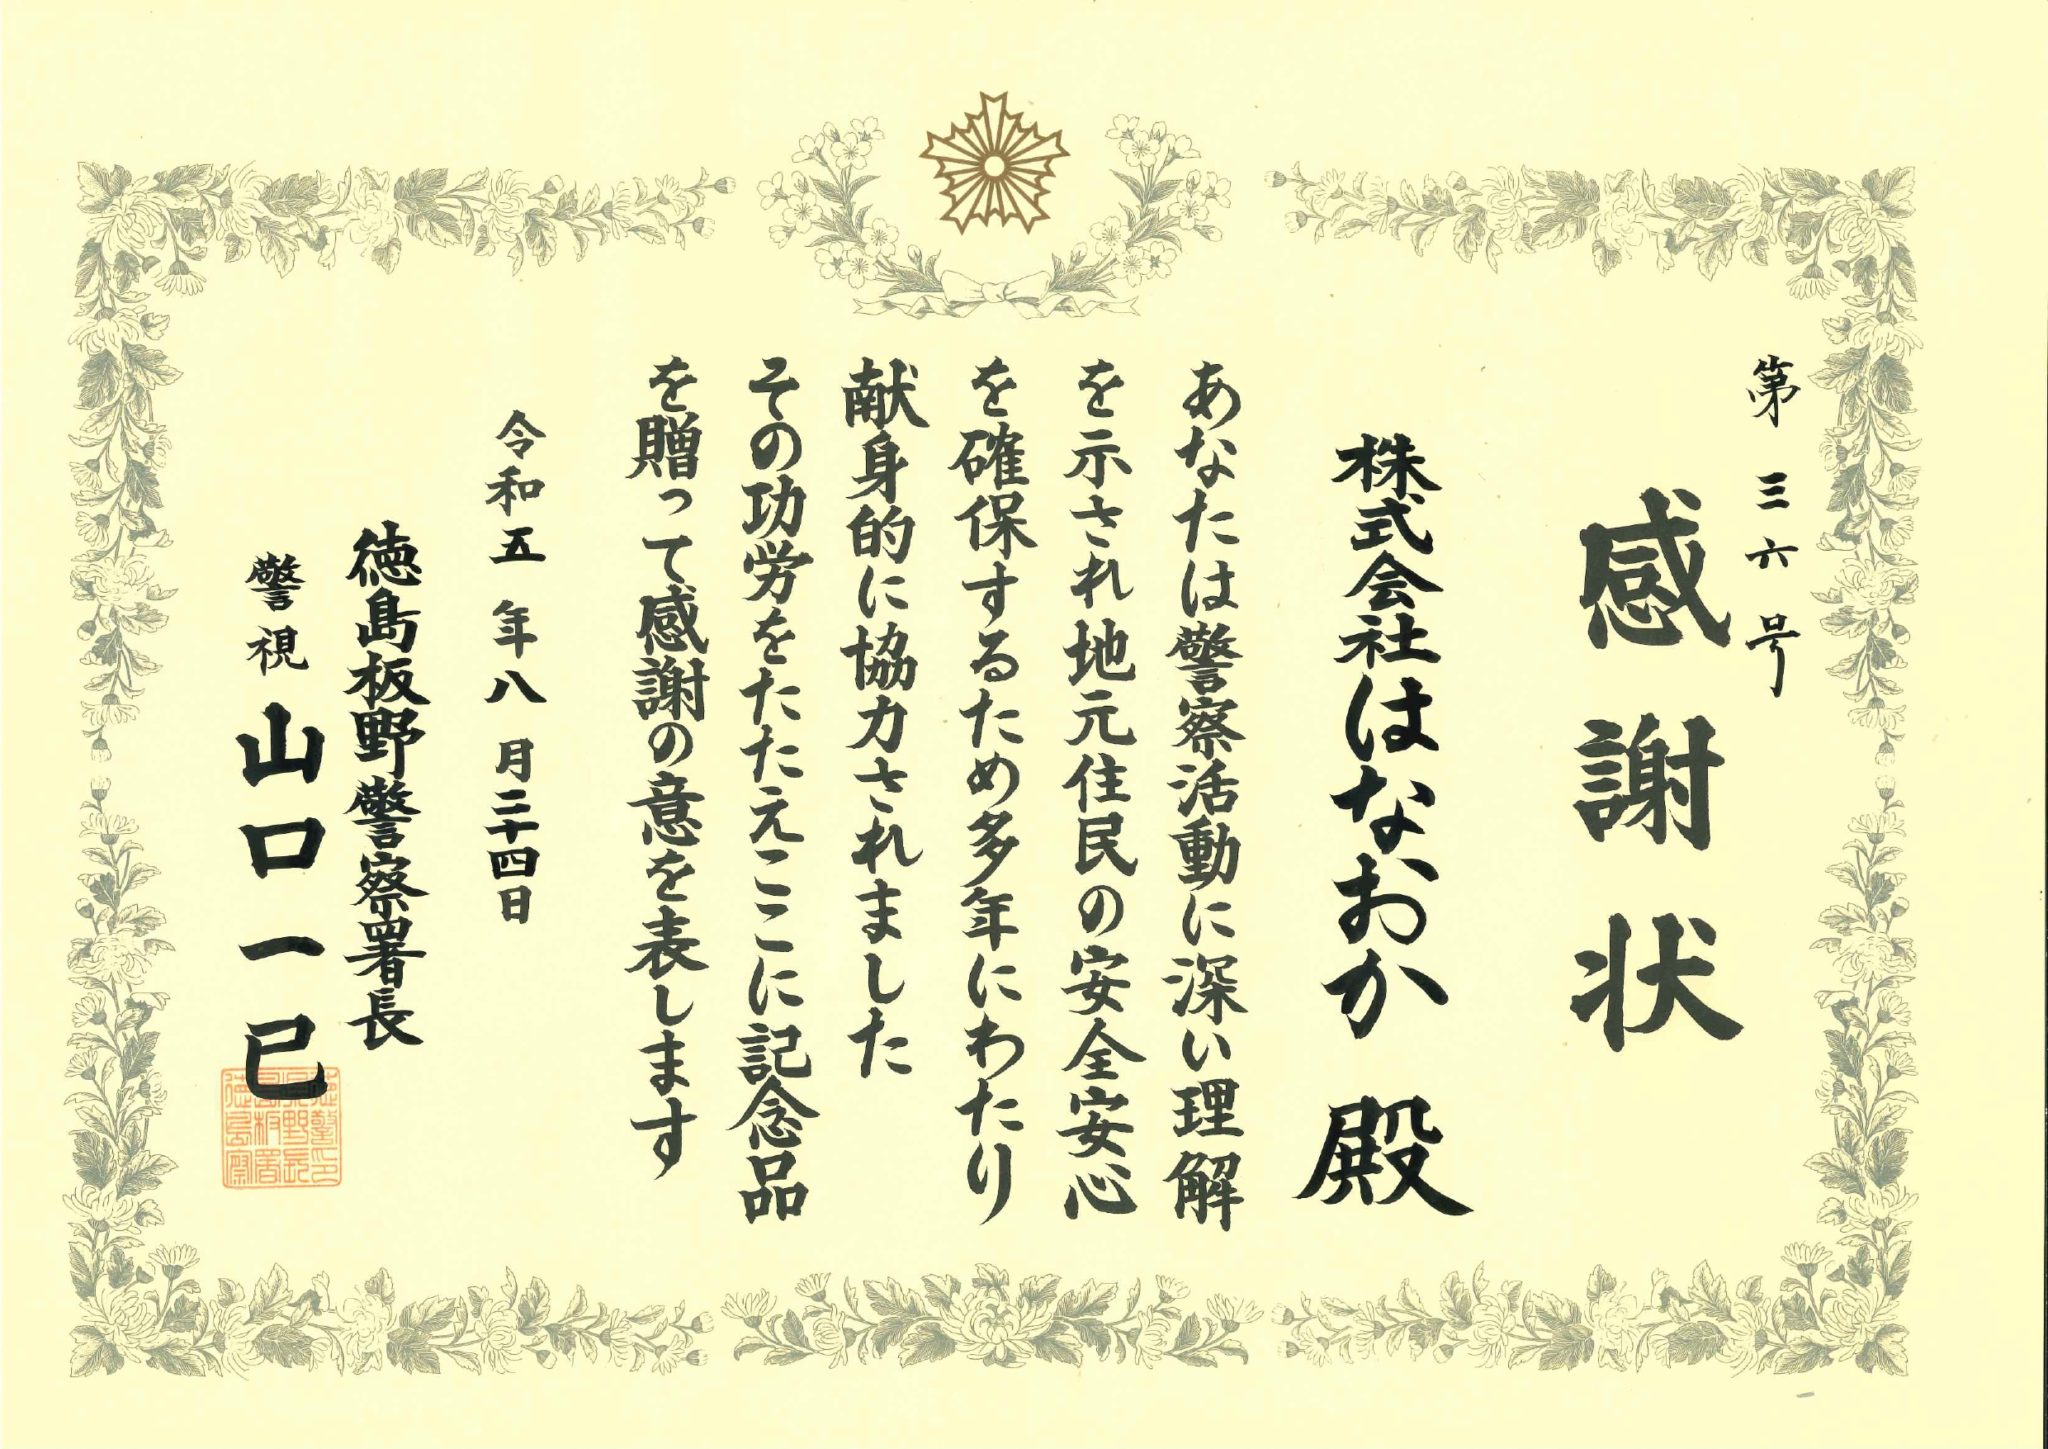 第三六号
感謝状
株式会社はなおか 殿
あなたは警察活動に深い理解
を示され地元住民の安全安心
を確保するため多年にわたり
献身的に協力されました
その功労をたたえここに記念品
を贈って感謝の意を表します
令和五年八月二十四日
徳島板野警察署長
警視 山口一巳